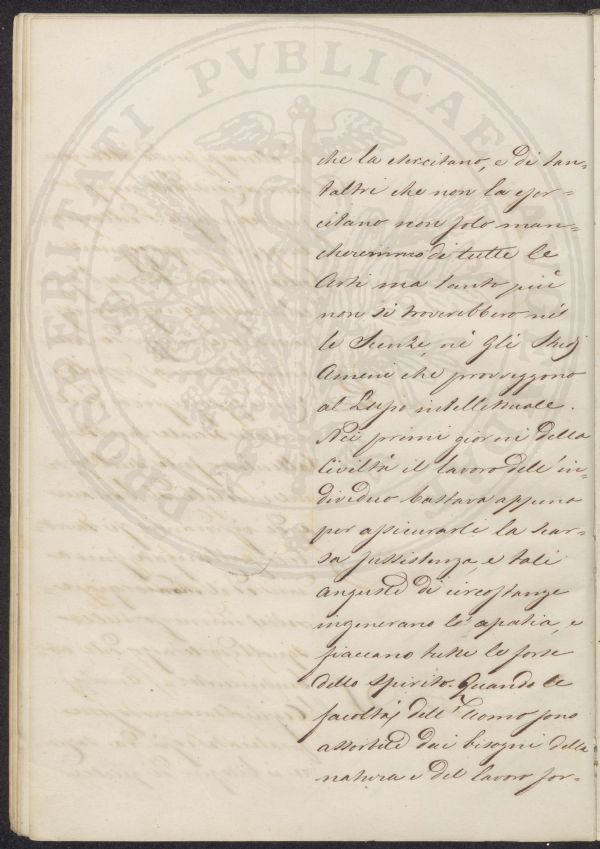 PROSPERITATI PVBLICAE
che la esercitano, e di tan=
t'altri che non la eser=
citano non solo man=
cheremmo di tutte le
Arti ma tanto più
non si troverebbero nè
le Scienze, nè gli Studj
Ameni che proveggono
al Lusso intellettuale.
Nei primi giorni della
Civiltà il lavoro dell'in=
dividuo bastava appena
per assicurarli la scar=
sa sussistenza, e tali
angustie di circostanze
ingenerano l'apatia, e
fiaccano tutte le forse
dello spirito. Quando le
facoltà dell'Uomo sono
assorbite dai bisogni della
natura e del lavoro for=